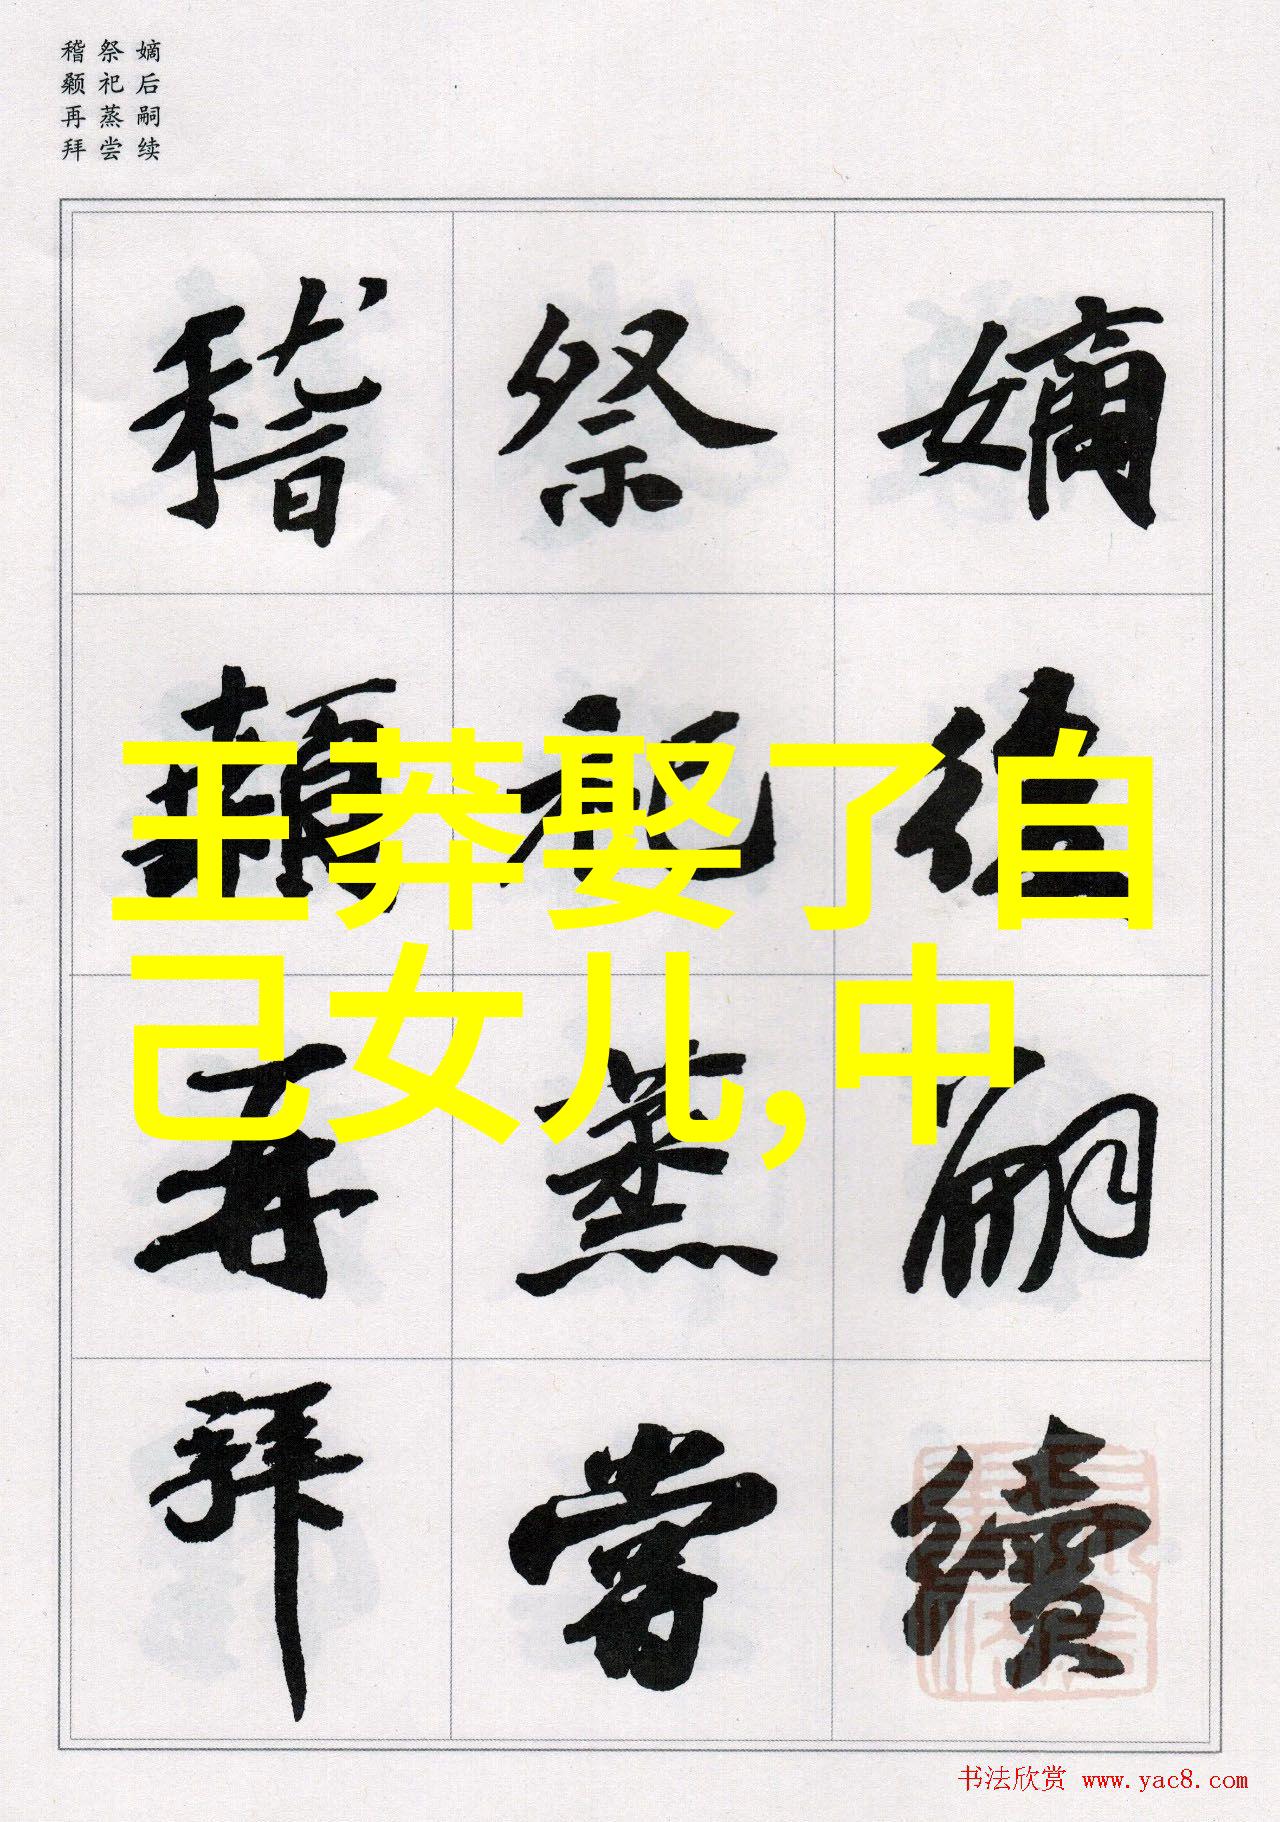 嫡后嗣续
祭祀蒸尝
稽颡再拜
嫡後嗣續
祭祀蒸嘗
稽顙再拜
王莽娶了自
己女儿,中
书法欣赏 www.yac8.com